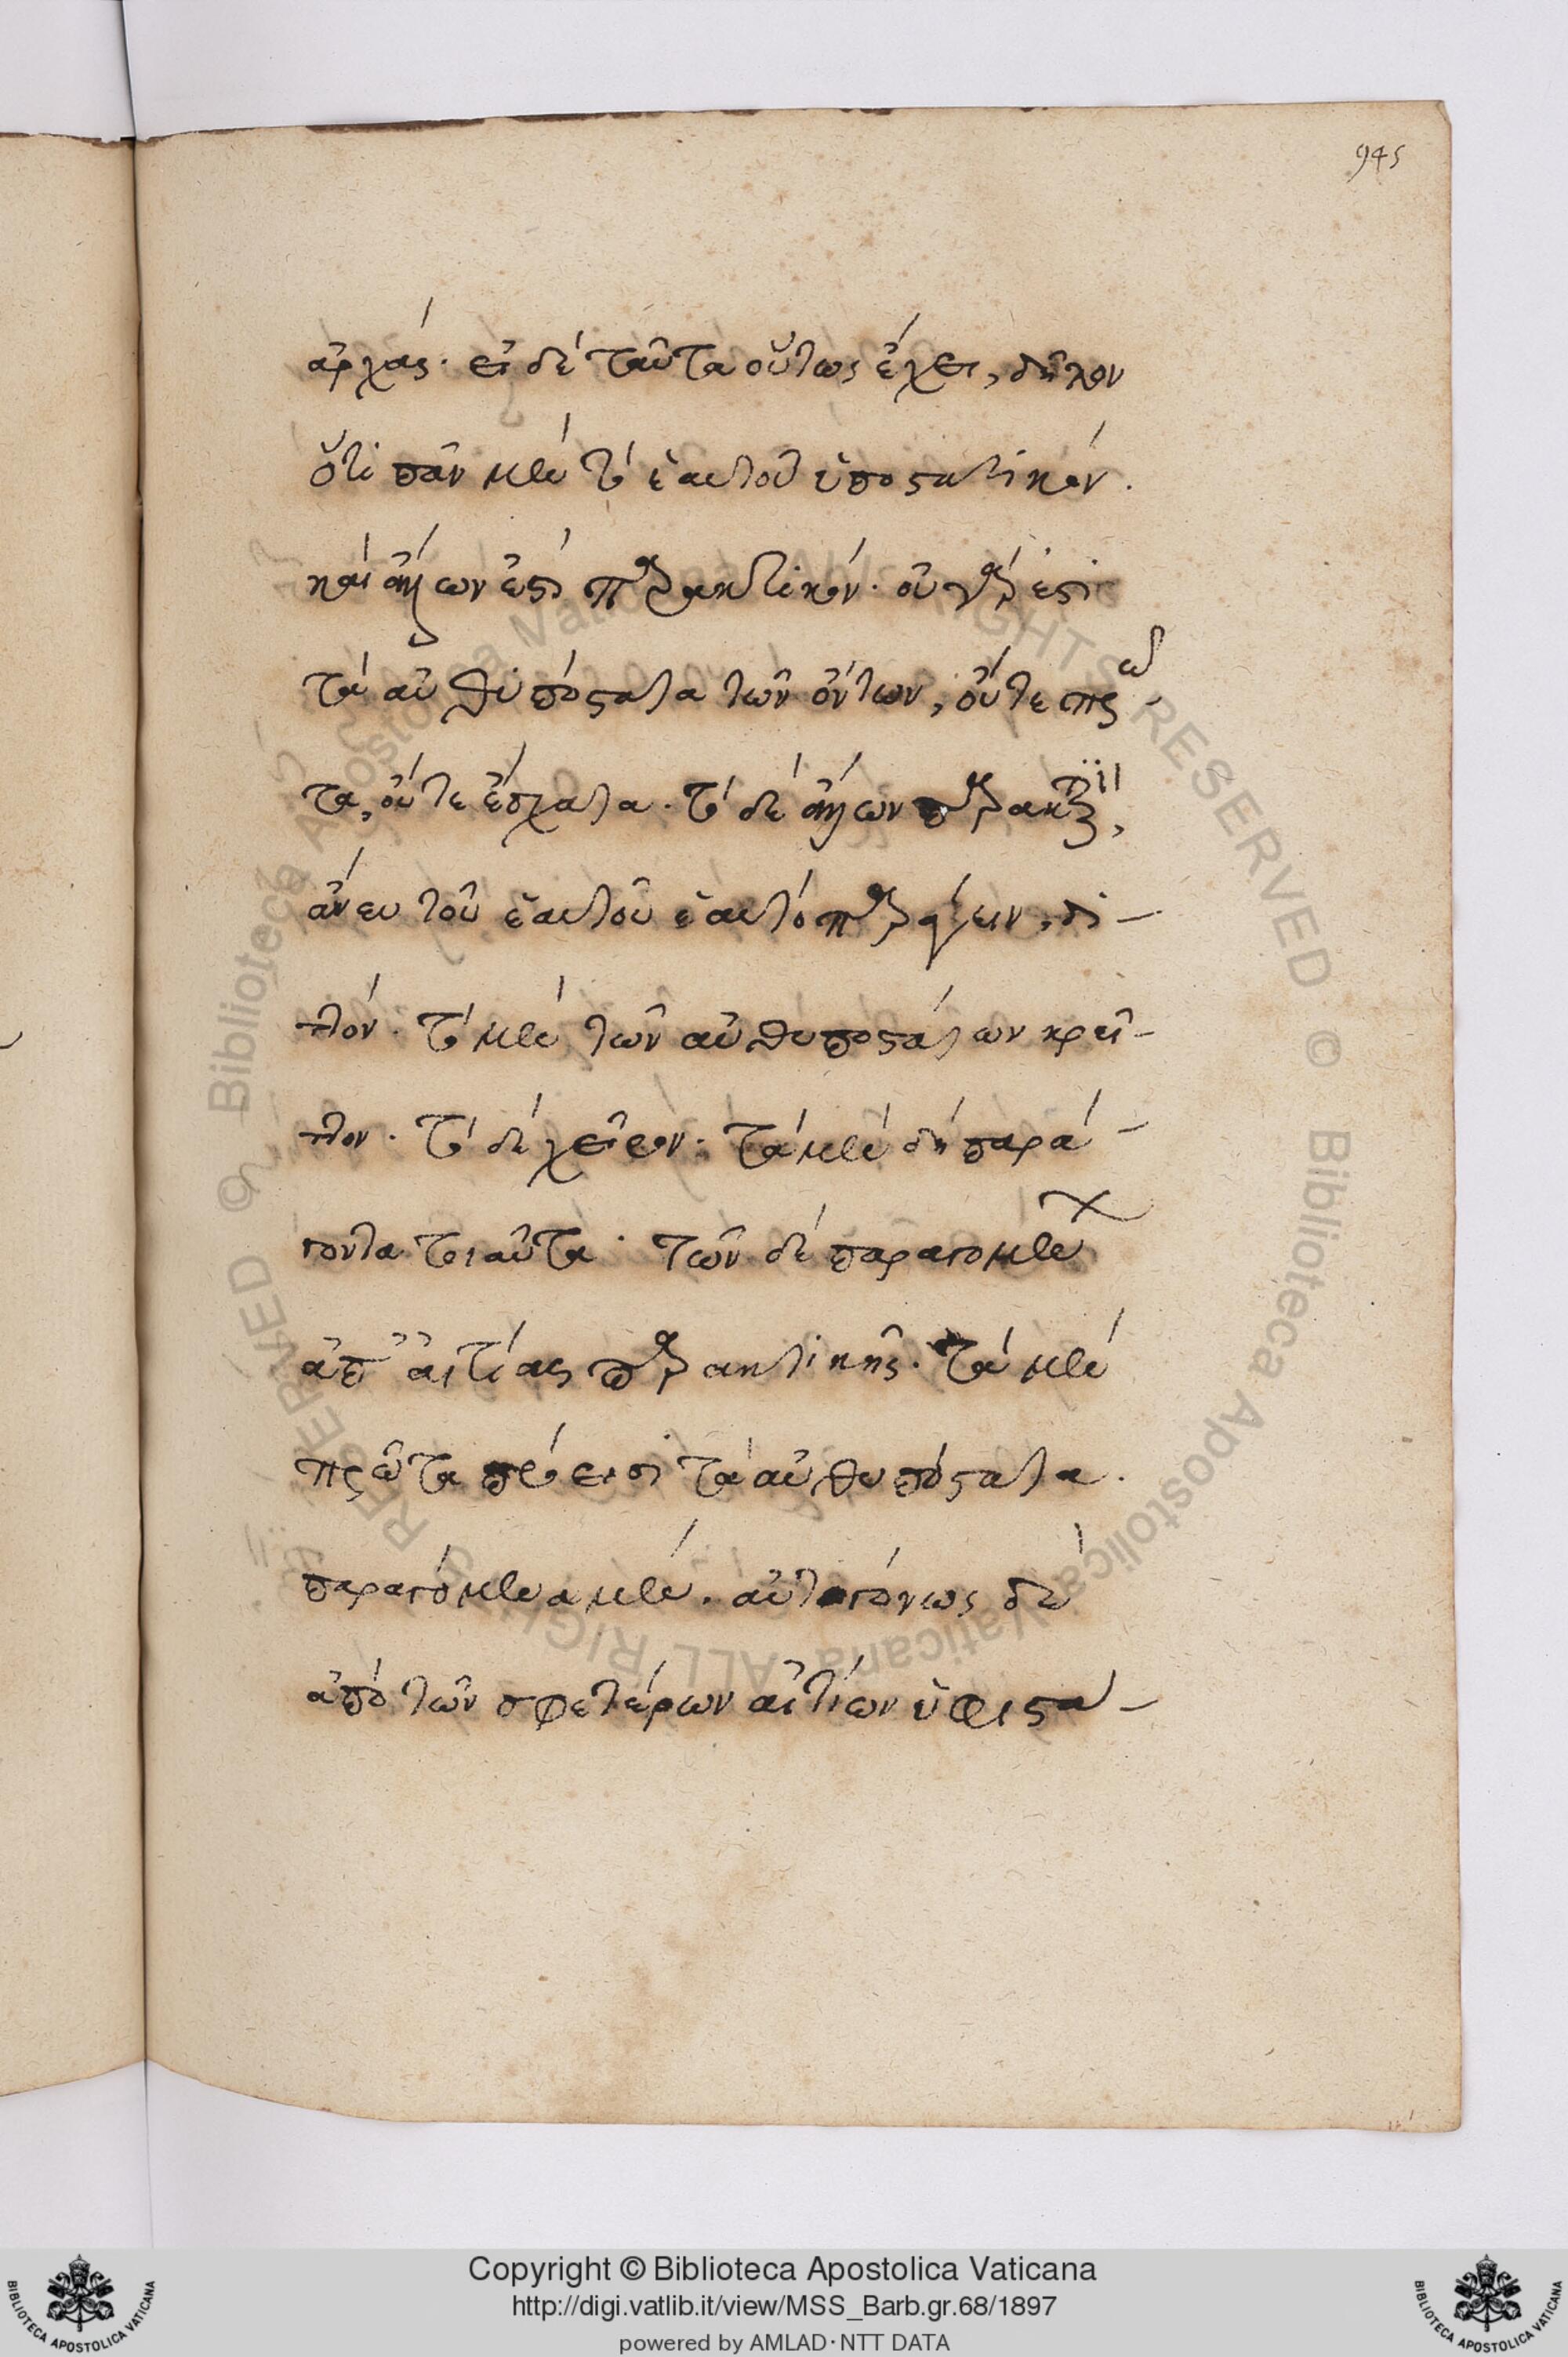 945
ἀρχάς. εἰ δὲ ταῦτα οὕτως ἔχει, δῆλον
ὅτι πᾶν μὲν τὸ ἑαυτοῦ ὑποστατικόν.
καὶ ἄλλων ἐστὶ παρακτικόν. οὐ γάρ ἐστι
τὰ αὐθυπόστατα τῶν ὄντων, οὔτε πρῶ-
τα, οὔτε ἔσχατα. τὸ δὲ ἄλλων παρακτικὸν,
ἄνευ τοῦ ἑαυτοῦ ἑαυτὸ παράγειν, δι-
ττόν. τὸ μὲν τῶν αὐθυποστάτων κρεῖ-
ττον. τὸ δὲ χεῖρον. τὰ μὲν δὴ παρά-
γοντα τοιαῦτα. τῶν δὲ παραγομένων
ἀπ' αἰτίας παρακτικῆς. τὰ μὲν
πρῶτα πρόεισι τὰ αὐθυπόστατα.
παραγόμενα μὲν. αὐτογόνως δὲ
ἀπὸ τῶν σφετέρων αἰτίων ὑφιστά-
© Biblioteca Apostolica Vaticana ALL RIGHTS RESERVED © Biblioteca Apostolica Vaticana ALL RIGHTS RESERVED
Copyright © Biblioteca Apostolica Vaticana
http://digi.vatlib.it/view/MSS_Barb.gr.68/1897
powered by AMLAD·NTT DATA
BIBLIOTECA APOSTOLICA VATICANA
BIBLIOTECA APOSTOLICA VATICANA